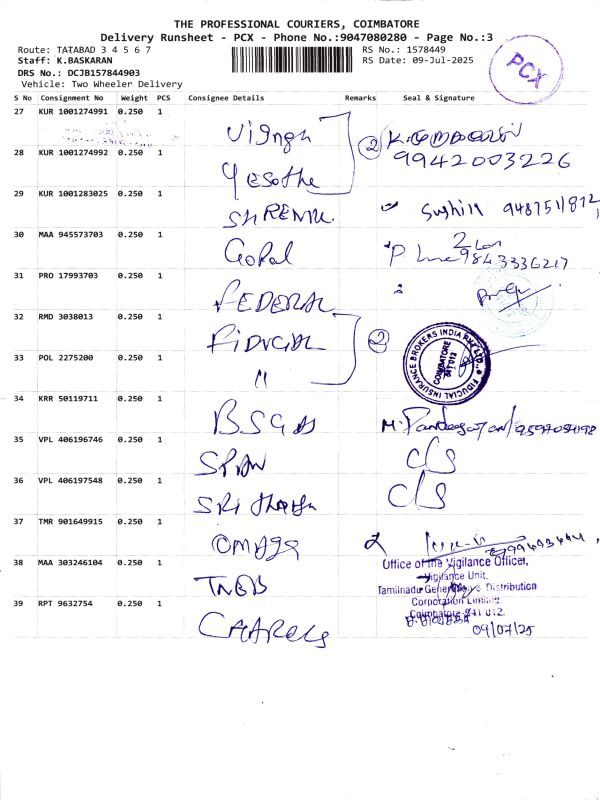 THE PROFESSIONAL COURIERS, COIMBATORE
Delivery Runsheet - PCX - Phone No.:9047080280 - Page No.:3
Route: TATABAD 3 4 5 6 7
RS No.: 1578449
Staff: K.BASKARAN
RS Date: 09-Jul-2025
DRS No.: DCJB157844903
Vehicle: Two Wheeler Delivery
PCX
S No Consignment No Weight PCS Consignee Details Remarks Seal & Signature
27 KUR 1001274991 0.250 1
28 KUR 1001274992 0.250 1 2 9942003226
29 KUR 1001283025 0.250 1 SHREMU Sushil
30 MAA 945573703 0.250 1 Gopal 9843336217
31 PRO 17993703 0.250 1 FEDERAL
32 RMD 3038013 0.250 1 FIDUCIAL 2
FIDUCIAL INSURANCE BROKERS INDIA PVT. LTD.
COIMBATORE
641 012
33 POL 2275200 0.250 1 "
34 KRR 50119711 0.250 1
35 VPL 406196746 0.250 1 SPAN C/S
36 VPL 406197548 0.250 1 SRI C/S
37 TMR 901649915 0.250 1 OMEGA
38 MAA 303246104 0.250 1 TNEB
Office of the Vigilance Officer,
Vigilance Unit,
Tamilnadu Generation & Distribution
Corporation Limited,
Coimbatore-641 012.
39 RPT 9632754 0.250 1
09/07/25